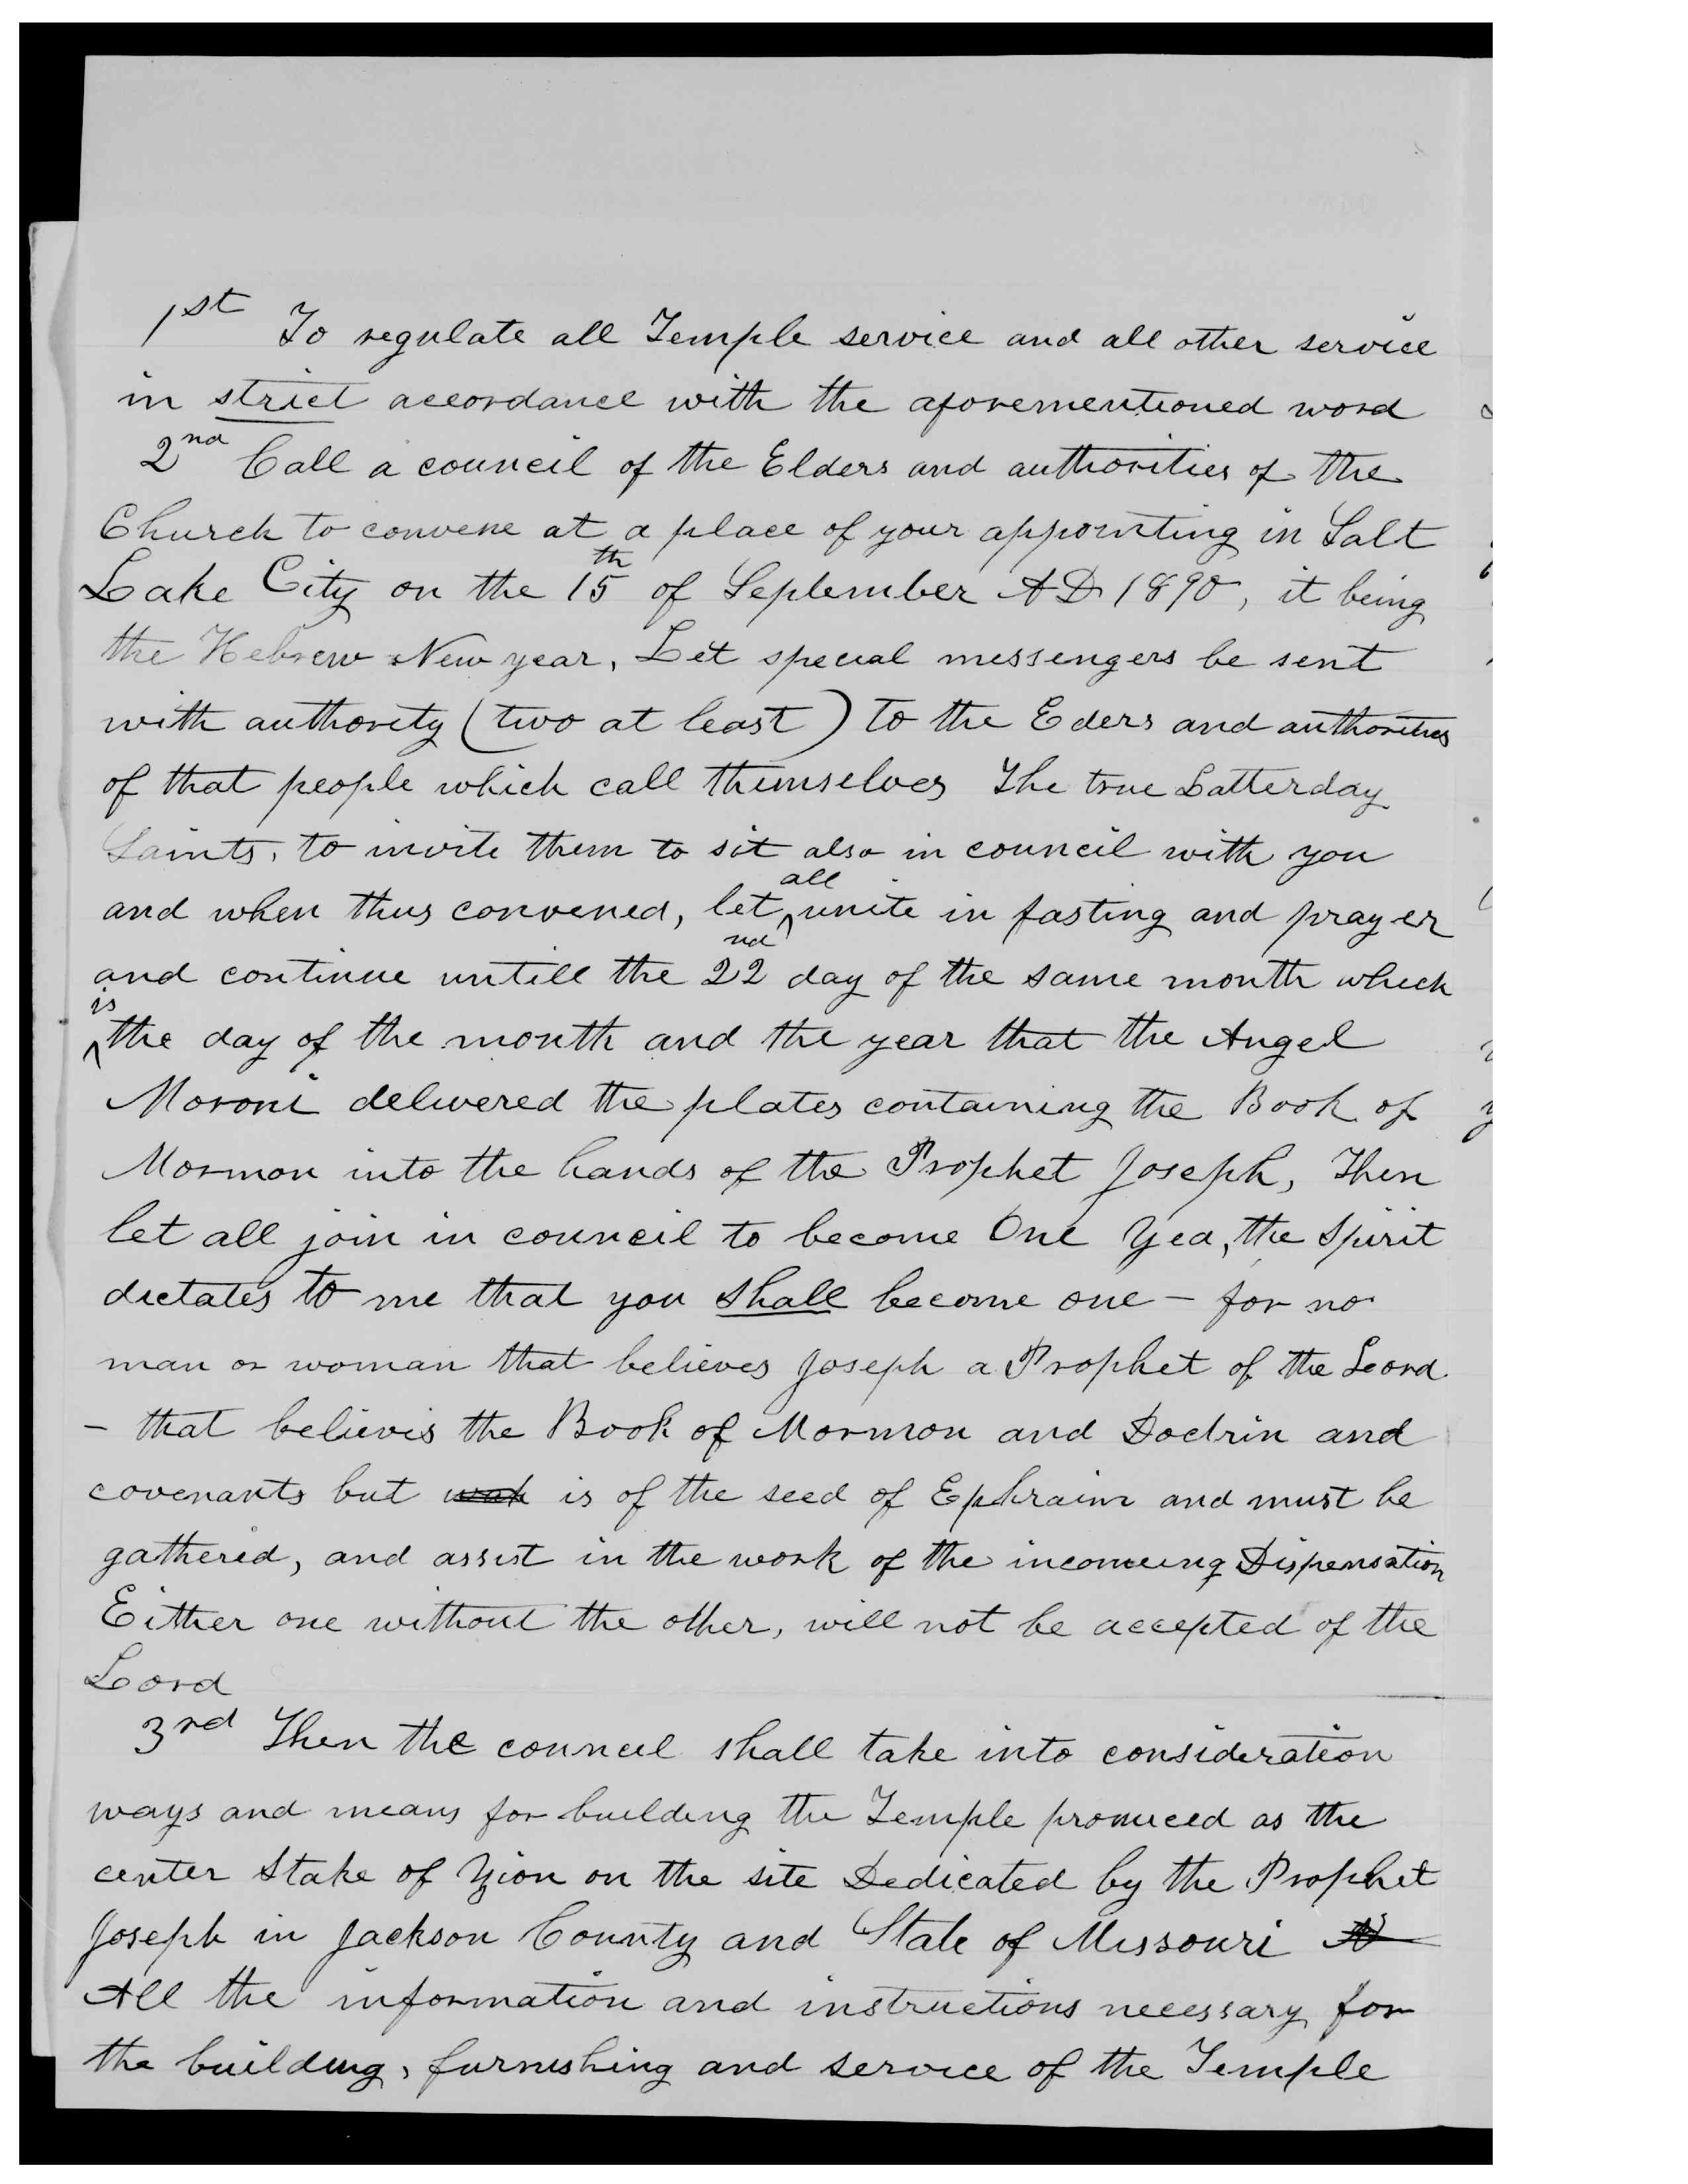 1st To regulate all Temple service and all other service
in strict accordance with the aforementioned word
2nd Call a council of the Elders and authorities of the
Church to convene at a place of your appointing in Salt
Lake City on the 15th of September A D 1890, it being
the Hebrew New year, Let special messengers be sent
with authority (two at least) to the Eders and authorities
of that people which call themselves The true Latterday
Saints, to invite them to sit also in council with you
and when thus convened, let all unite in fasting and prayer
and continue untill the 22nd day of the same month which
is the day of the month and the year that the Angel
Moroni delivered the plates containing the Book of
Mormon into the hands of the Prophet Joseph, Then
let all join in council to become One Yea, the Spirit
dictates to me that you shall become one – for no
man or woman that believes Joseph a Prophet of the Lord
– that believes the Book of Mormon and Doctrin and
covenants but is of the seed of Ephraim and must be
gathered, and assist in the work of the incomeing Dispensation
Either one without the other, will not be accepted of the
Lord
3rd Then the council shall take into consideration
ways and means for building the Temple promiced as the
center Stake of Zion on the site Dedicated by the Prophet
Joseph in Jackson County and State of Missouri
All the information and instructions necessary for
the building, furnishing and service of the Temple